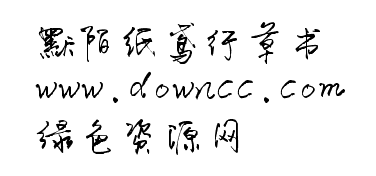 默陌纸鸢行草书
www.downcc.com
绿色资源网